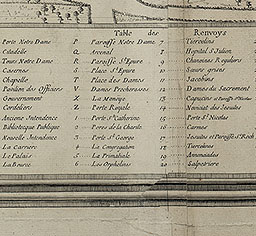 Table des Renvoys
Porte Notre Dame P Paroisse Notre Dame 7 Tiercelins
Citadelle Q Arcenal 8 Hopital St Julien
Tours Notre Dame R Paroisse St Epure 9 Chanoines Reguliers
Casernes S Place St Epure 10 Sœurs grises
Chapelle T Place des Dames 11 Jacobins
Pavillon des Officiers V Dames Precheresses 12 Dames du St Sacrement
Gouvernement X La Monoye 13 Capucins et Paroisse St Nicolas
Cordeliers Z Porte Royale 14 Noviciat des Jesuites
Ancienne Intendance 1 Porte St Catherine 15 Porte St Nicolas
Bibliotheque Publique 2 Poros de la Charite 16 Carmes
Nouvelle Intendance 3 Porte St George 17 Jesuites et Paroisse St Roch
La Carriere 4 La Congregation 18
Le Palais 5 La Primatiale 19 Annonciades
La Bourse 6 Les Orphelines 20 Salpetriere